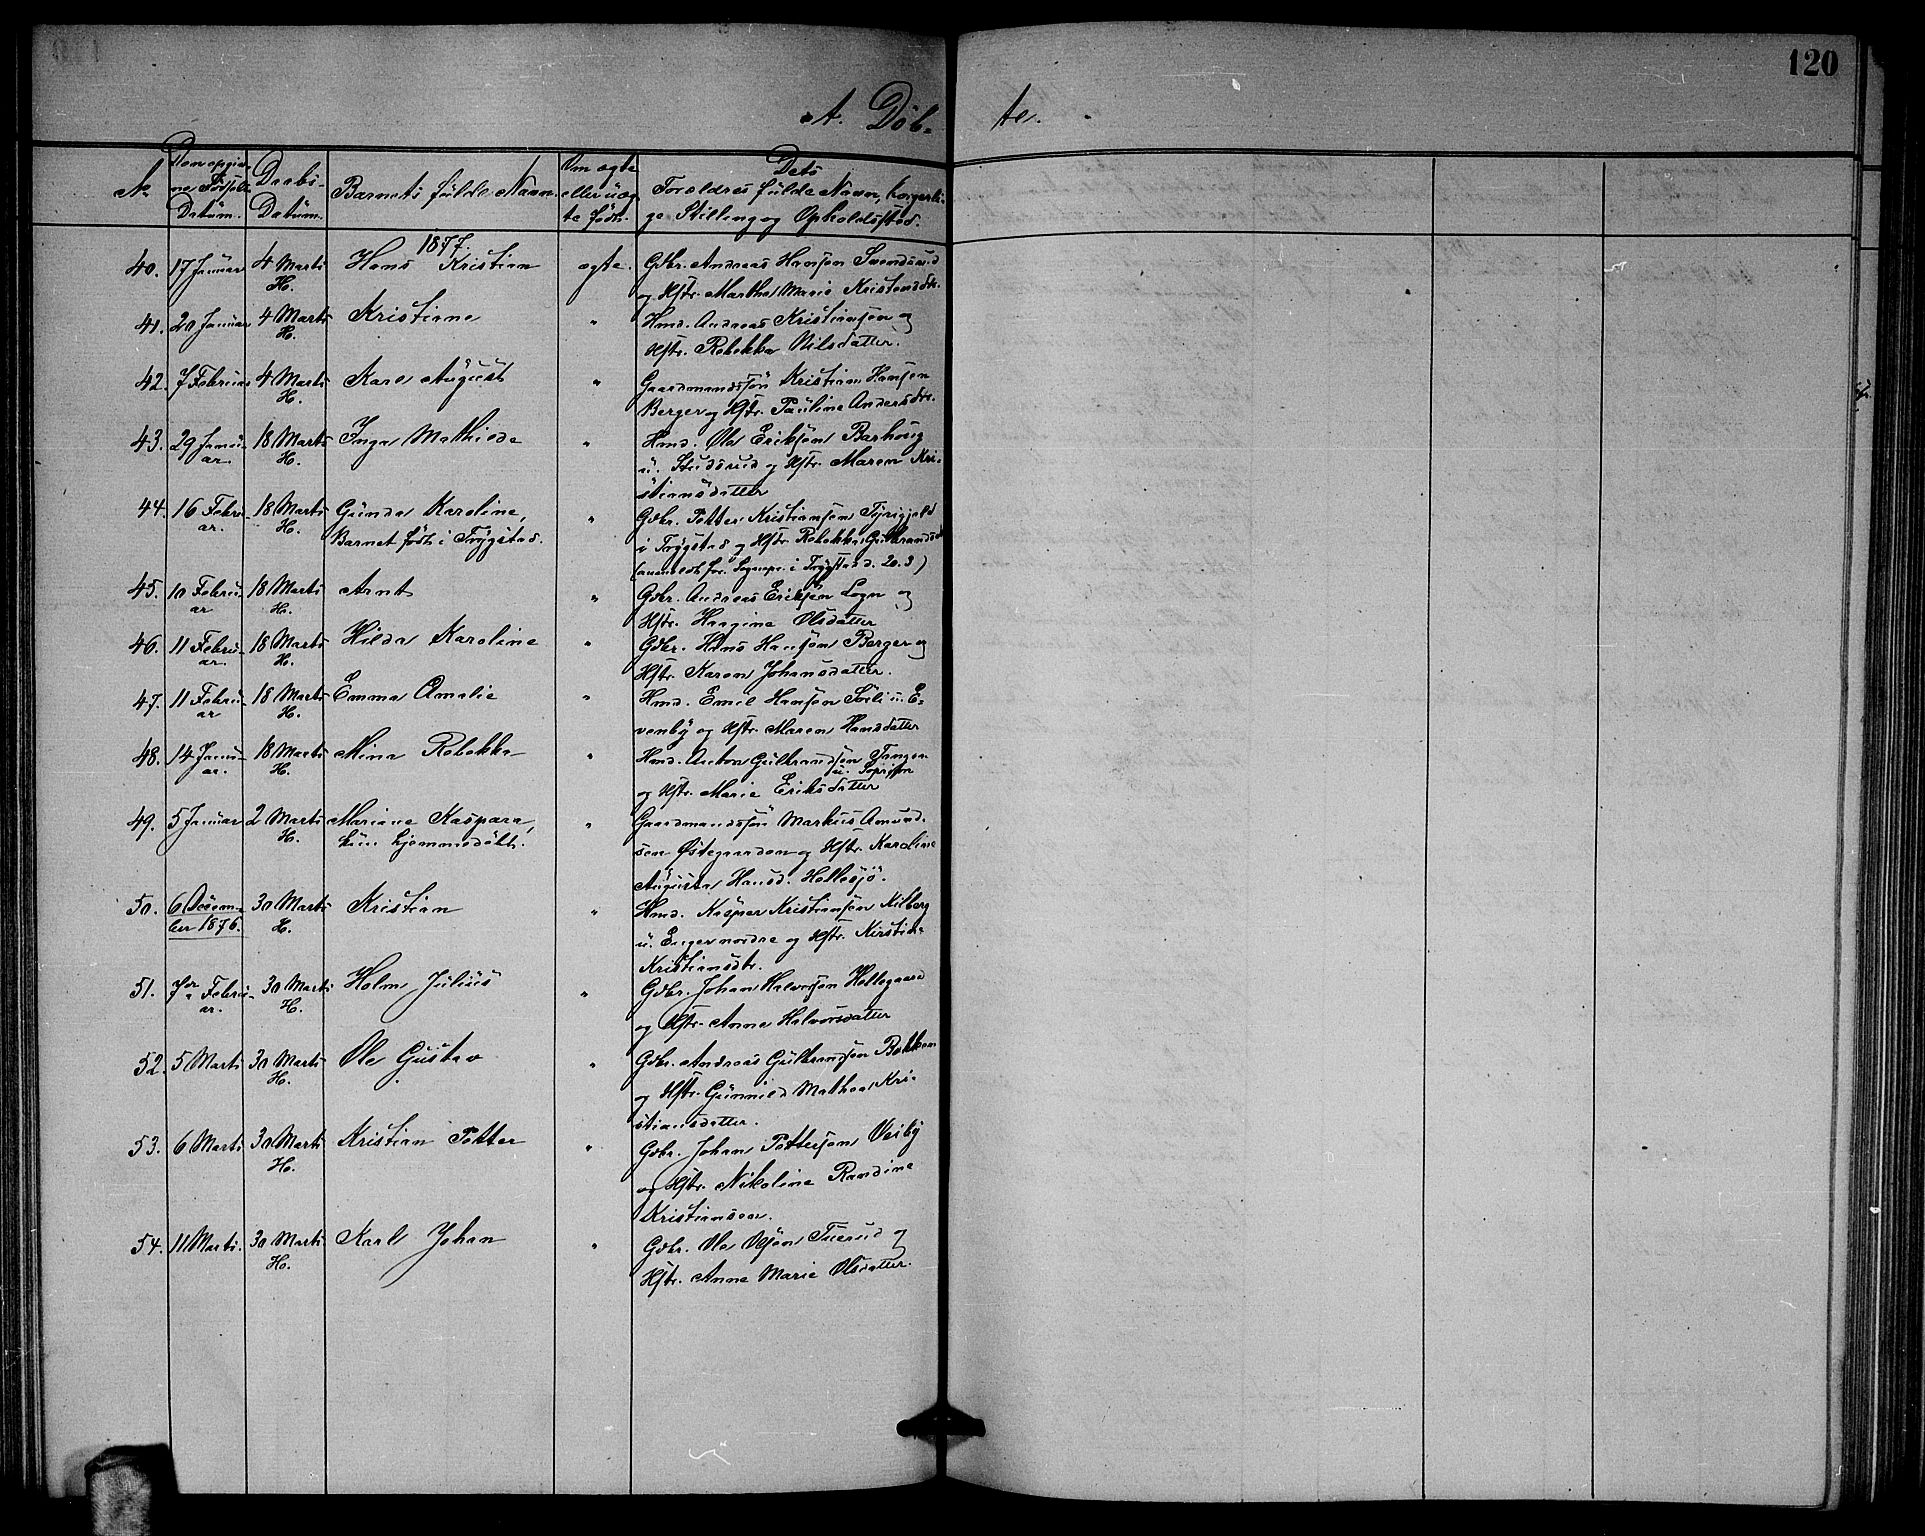 120
A. Döb- te.
No
Den opgiv-
ne Födsels
Datum.
Daabs-
Datum.
Barnets fulde Navn
Om ægte
eller uæg-
te født.
Dets
Forældres fulde Navn, borgerli-
ge Stilling og Opholdssted.
1877.
40. 17 Januar 4 Marts Hans Kristian ægte. Gdbr. Andreas Hansen Svendsrud
H. og Hstr. Martha Marie Kristensdtr.
41. 20 Januar 4 Marts Kristiane " Hmd. Andreas Kristiansen og
H. Hstr. Rebekka Nilsdatter.
42. 7 Februar 4 Marts Karl August " Gaardmandssön Kristian Hansen
H. Berger og Hstr. Pauline Andersdtr.
43. 29 Janu- 18 Marts Inga Mathilde " Hmd. Ole Eriksen Barhoug
ar. H. u. Studsrud og Hstr. Maren Kri-
stiansdatter
44. 16 Febru- 18 Marts Gunda Karoline, " Gdbr. Petter Kristiansen Tyrigjeld
ar. H. Barnet født i Trygstad. i Trygstad og Hstr. Rebekka Gulbrandsdt
(anmeldt for Sognepr. i Trygstad d. 20.3)
45. 10 Febru- 18 Marts Arnt " Gdbr. Andreas Eriksen Logn og
ar H. Hstr. Haagine Olsdatter
46. 11 Febru- 18 Marts Hilda Karoline " Gdbr. Hans Hansen Berger og
ar. H. Hstr. Karen Johansdatter.
47. 11 Febru- 18 Marts Emma Amalie " Hmd. Emil Hansen Söli u. E-
ar H. venby og Hstr. Maren Hansdatter
48. 14 Janu- 18 Marts Mina Rebekka " Hmd. Anton Gulbrandsen Tangen
ar. H. og Hstr. Marie Eriksdatter
49. 5 Januar 2 Marts Mariane Kaspara, " Gaardmandssön Markus Amund-
H. kun hjemmedöbt. sen Østegaarden og Hstr. Karoline
Augusta Hansd. Hellesjö.
50. 6 Decem- 30 Marts Kristian " Hmd. Kaspar Kristiansen Kilberg
ber 1876. H. u. Enger nordre og Hstr. Kirstine
Kristiansdtr.
51. 7de Febru- 30 Marts Holm Julius " Gdbr. Johan Halvorsen Hellegaard
ar. H. og Hstr. Anne Halvorsdatter
52. 5 Marts 30 Marts Ole Gustav " Gdbr. Andreas Gulbrandsen Bakken
H. og Hstr. Gunnild Mathea Kri-
stiansdatter.
53. 6 Marts 30 Marts Kristian Petter " Gdbr. Johan Pettersen Visby
H. og Hstr. Nikoline Randine
Kristiansen.
54. 11 Marts. 30 Marts Karl Johan " Gdbr. Ole Olsen Tuerud og
H. Hstr. Anne Marie Olsdatter.